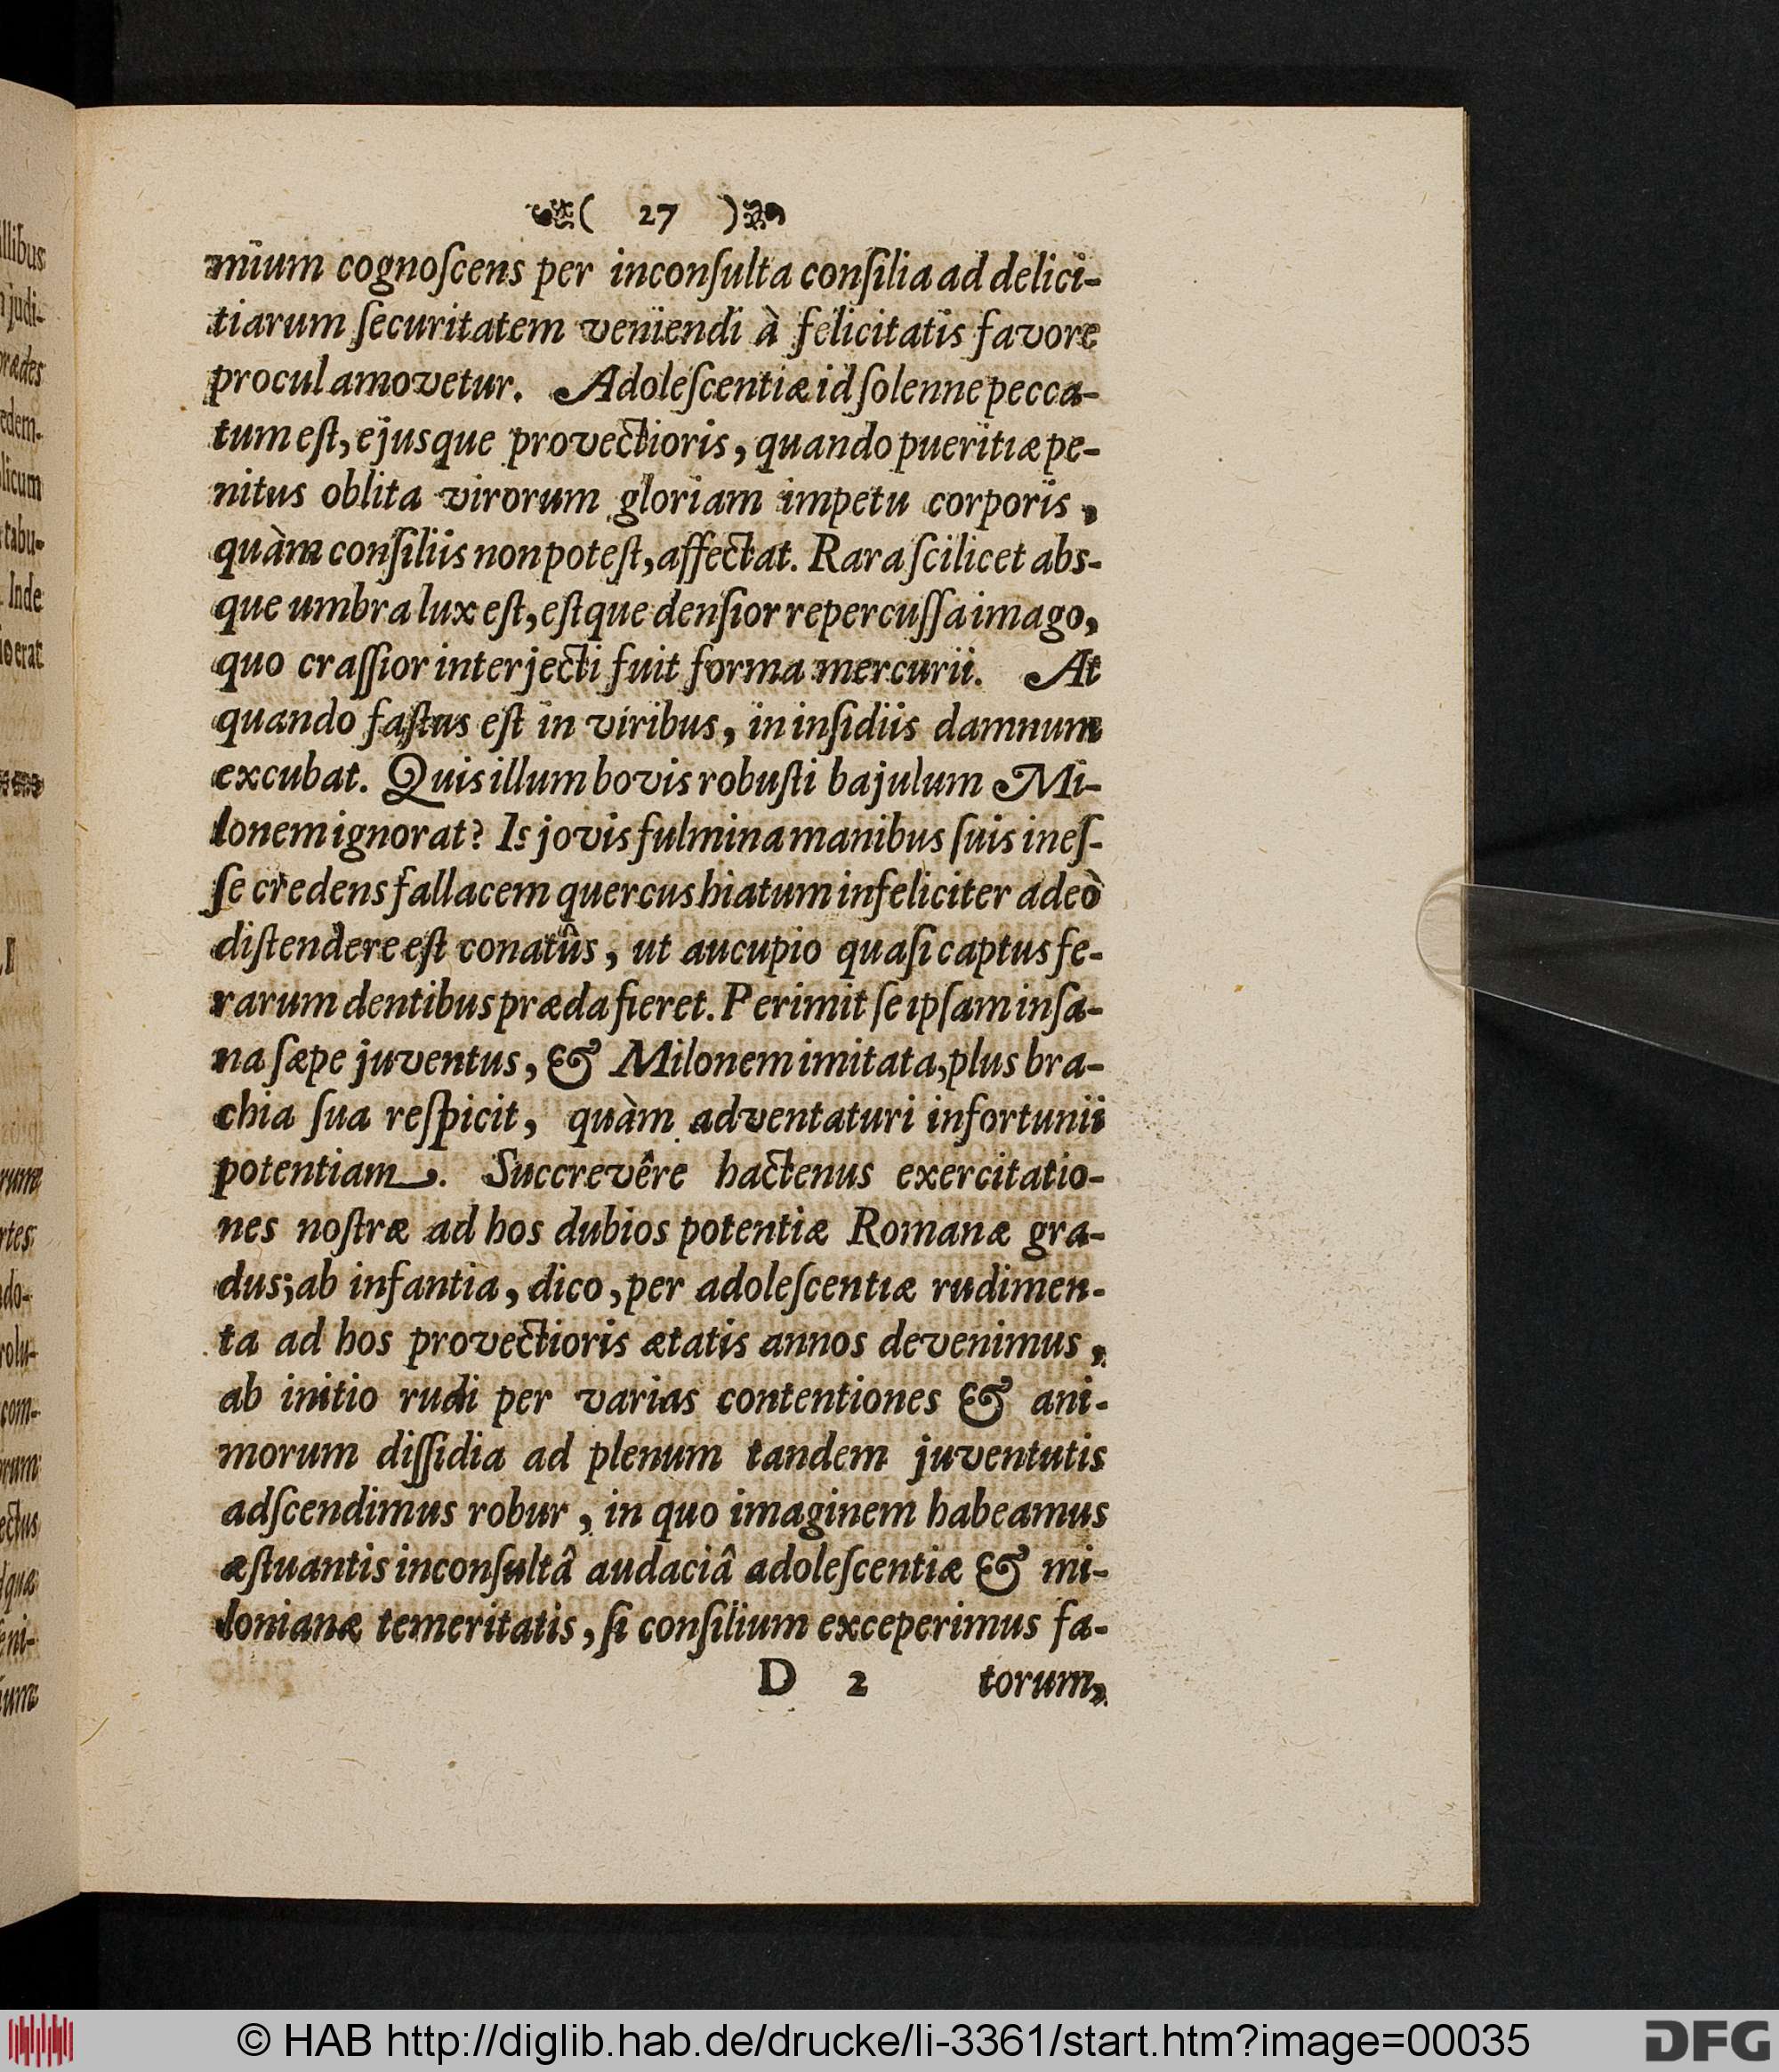 ( 27 )
mium cognoſcens per inconſulta conſilia ad delici-
tiarum ſecuritatem veniendi à felicitatis favore
procul amovetur. Adoleſcentiæ id ſolenne pecca-
tum eſt, ejusque provectioris, quando pueritiæ pe-
nitus oblita virorum gloriam impetu corporis,
quàm conſiliis non poteſt, affectat. Rara ſcilicet abs-
que umbra lux eſt, eſtque denſior repercuſſa imago,
quo craſſior interjecti fuit forma mercurii. At
quando faſtus eſt in viribus, in inſidiis damnum
excubat. Quis illum bovis robuſti bajulum Mi-
lonem ignorat? Is jovis fulmina manibus ſuis ineſ-
ſe credens fallacem quercus hiatum infeliciter adeò
diſtendere eſt conatûs, ut aucupio quaſi captus fe-
rarum dentibus præda fieret. Perimit ſe ipſam inſa-
na ſæpe juventus, & Milonem imitata, plus bra-
chia ſua reſpicit, quàm adventaturi infortunii
potentiam. Succrevêre hactenus exercitatio-
nes noſtræ ad hos dubios potentiæ Romanæ gra-
dus; ab infantia, dico, per adoleſcentiæ rudimen-
ta ad hos provectioris ætatis annos devenimus,
ab initio rudi per varias contentiones & ani-
morum diſſidia ad plenum tandem juventutis
adſcendimus robur, in quo imaginem habeamus
æſtuantis inconſultâ audaciâ adoleſcentiæ & mi-
lonianæ temeritatis, ſi conſilium exceperimus fa-
D 2 torum,
© HAB http://diglib.hab.de/drucke/li-3361/start.htm?image=00035
DFG